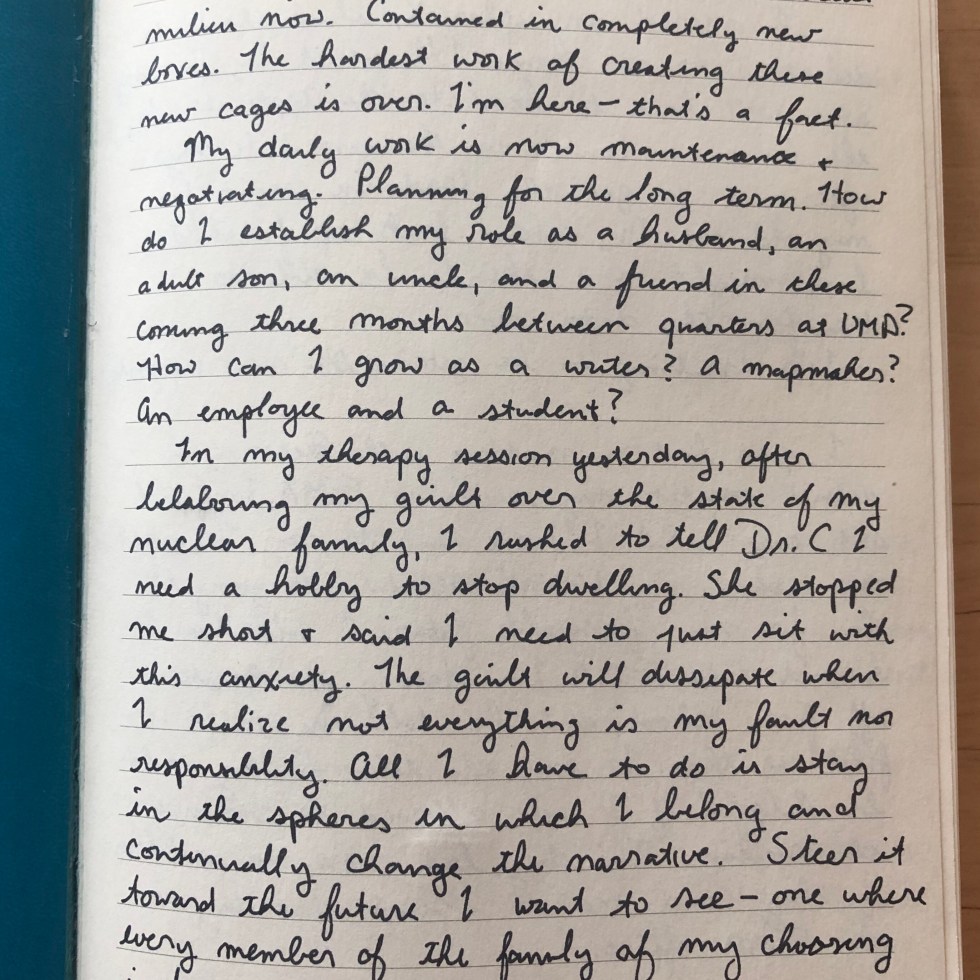 milieu now. Contained in completely new
boxes. The hardest work of creating these
new cages is over. I'm here – that's a fact.
My daily work is now maintenance +
negotiating. Planning for the long term. How
do I establish my role as a husband, an
adult son, an uncle, and a friend in these
coming three months between quarters at UMA?
How can I grow as a writer? A mapmaker?
An employee and a student?
In my therapy session yesterday, after
belaboring my guilt over the state of my
nuclear family, I rushed to tell Dr. C I
need a hobby to stop dwelling. She stopped
me short + said I need to just sit with
this anxiety. The guilt will dissepate when
I realize not everything is my fault nor
responsibility. All I have to do is stay
in the spheres in which I belong and
continually change the narrative. Steer it
toward the future I want to see – one where
every member of the family of my choosing